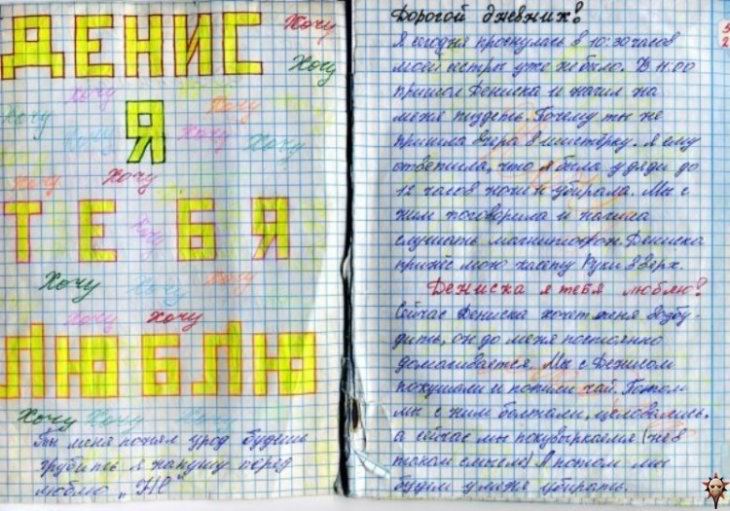 ДЕНИС
Хочу
Хочу
Хочу
Хочу
Хочу
Хочу
Хочу
Хочу
Я
Хочу
Хочу
ТЕБЯ
Хочу
Хочу
Хочу
Хочу
Хочу
Хочу
ЛЮБЛЮ
Хочу Хочу Хочу
Ты меня понял урод будешь
грубить я напишу перед
люблю „НЕ"
Дорогой дневник!
Я сегодня проснулась в 10:30 часов
моей сестры уже не было. В 11:00
пришол Дениска и начил на
меня пиздеть. Почему ты не
пришла вчера в шестёрку. Я ему
ответила, что я была у дяди до
12 часов ночи и убирала. Мы с
ним поговорили и начила
слушать магнитофон. Дениска
принёс мою касету Руки Вверх.
Дениска я тебя люблю!
Сейчас Дениска хочет меня возбу-
дить, он до меня постоянно
домагивается. Мы с Денисом
покушали и попили чай. Потом
мы с ним болтали, целовались,
а сейчас мы покувыркаемя (не в
таком смысле) А потом мы
будим у меня убирать.